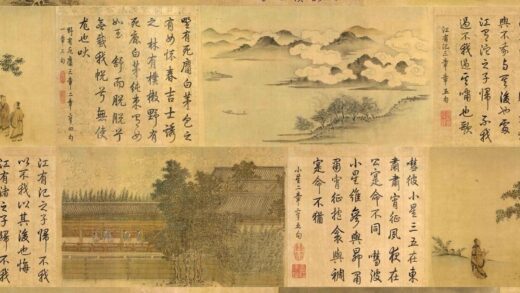 與不我與其後也處
江有沱之子歸不我
過不我過其嘯也歌
江有汜三章章五句
野有死麕白茅包之
有女懷春吉士誘
之 林有樸樕野有
死鹿白茅純束有女
如玉 舒而脫脫兮
無感我帨兮無使
尨也吠
野有死麕三章二章章四句
一章三句
嘒彼小星三五在東
肅肅宵征夙夜在
公寔命不同 嘒彼
小星維參與昴肅
肅宵征抱衾與裯
寔命不猶
小星二章章五句
江有汜之子歸不我
以不我以其後也悔
江有渚之子歸不我